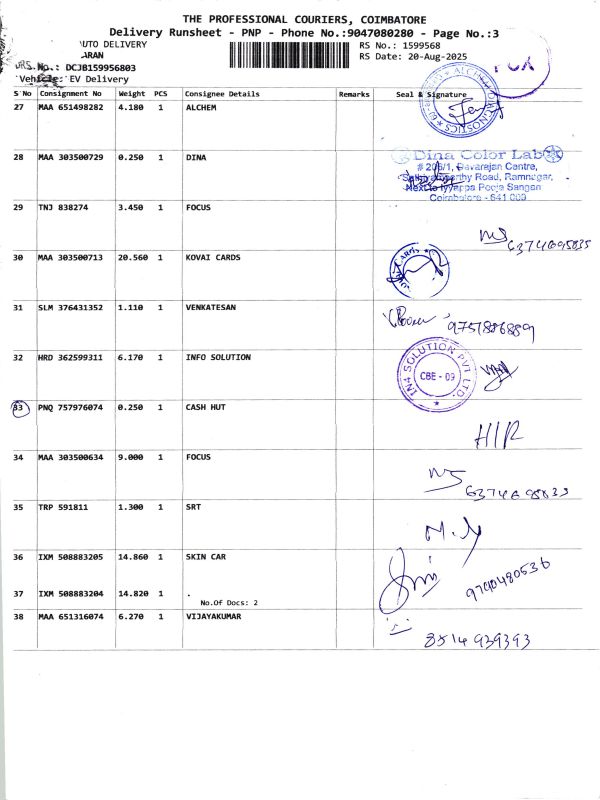 THE PROFESSIONAL COURIERS, COIMBATORE
Delivery Runsheet - PNP - Phone No.:9047080280 - Page No.:3
UTO DELIVERY
ARAN
RS No.: 1599568
RS Date: 20-Aug-2025
No.: DCJB159956803
Vehicle: EV Delivery
S No Consignment No Weight PCS Consignee Details Remarks Seal & Signature
27 MAA 651498282 4.180 1 ALCHEM
28 MAA 303500729 0.250 1 DINA
Dina Color Lab
# 206/1, Devarajan Centre,
Road, Ramnagar,
Next to Iyyappa Pooja Sangam
Coimbatore - 641 009
29 TNJ 838274 3.450 1 FOCUS
30 MAA 303500713 20.560 1 KOVAI CARDS
31 SLM 376431352 1.110 1 VENKATESAN
9751886889
32 HRD 362599311 6.170 1 INFO SOLUTION
IN4 SOLUTION PVT LTD.
CBE - 09
33 PNQ 757976074 0.250 1 CASH HUT
34 MAA 303500634 9.000 1 FOCUS
35 TRP 591811 1.300 1 SRT
36 IXM 508883205 14.860 1 SKIN CAR
9790480536
37 IXM 508883204 14.820 1 .
No.Of Docs: 2
38 MAA 651316074 6.270 1 VIJAYAKUMAR
8514939393